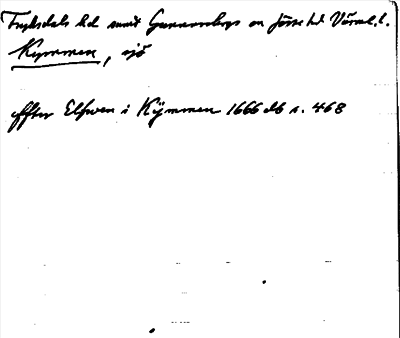 Fryksdals hd samt Gunnarskogs sn Jösse hd Värml.l.
Kymmen, sjö
effter Elfwen i Kÿmmen 1666 db s. 468